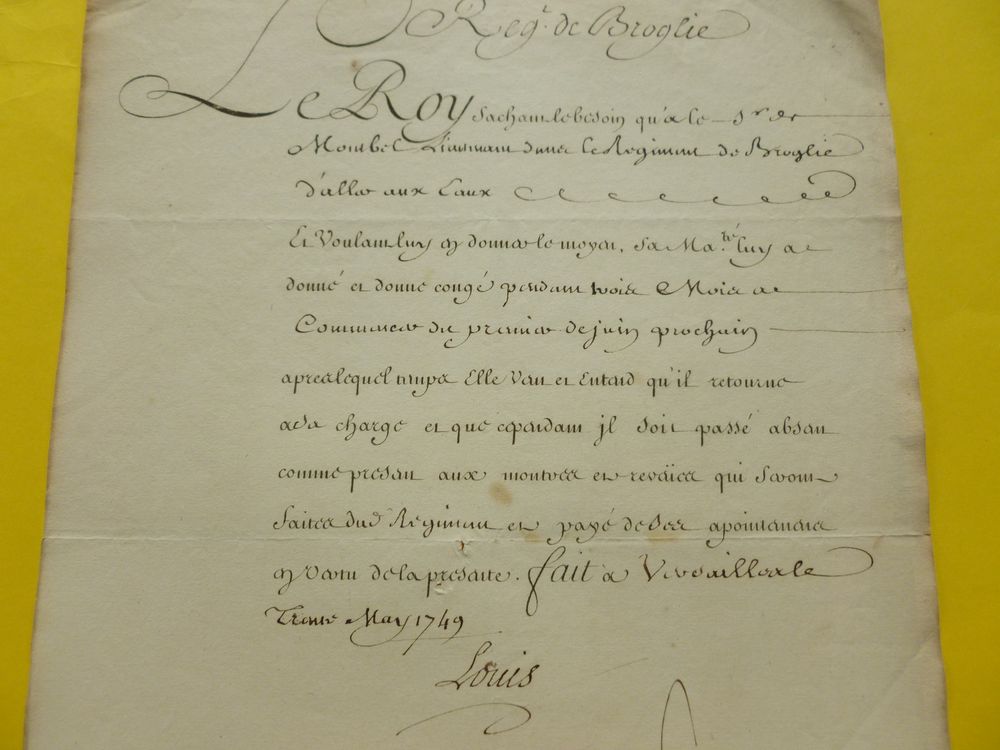 Reg.t de Broglie
Le Roy sachant le besoin qu'a le Sr. de
Montbel Lieutenant dans le Regiment de Broglie
d'aller aux Eaux
Et Voulant luy en donner le moyen, sa Ma.té luy a
donné et donne congé pendant trois Mois a
Commencer du premier de juin prochain
apres lequel temps Elle Veut et Entend qu'il retourne
a sa charge et que cependant jl soit passé absent
comme present aux montres et reveües qui seront
faites dud. Regiment et payé de ses apointements
en vertu de la presente. fait a Versailles le
Trente May 1749
Louis